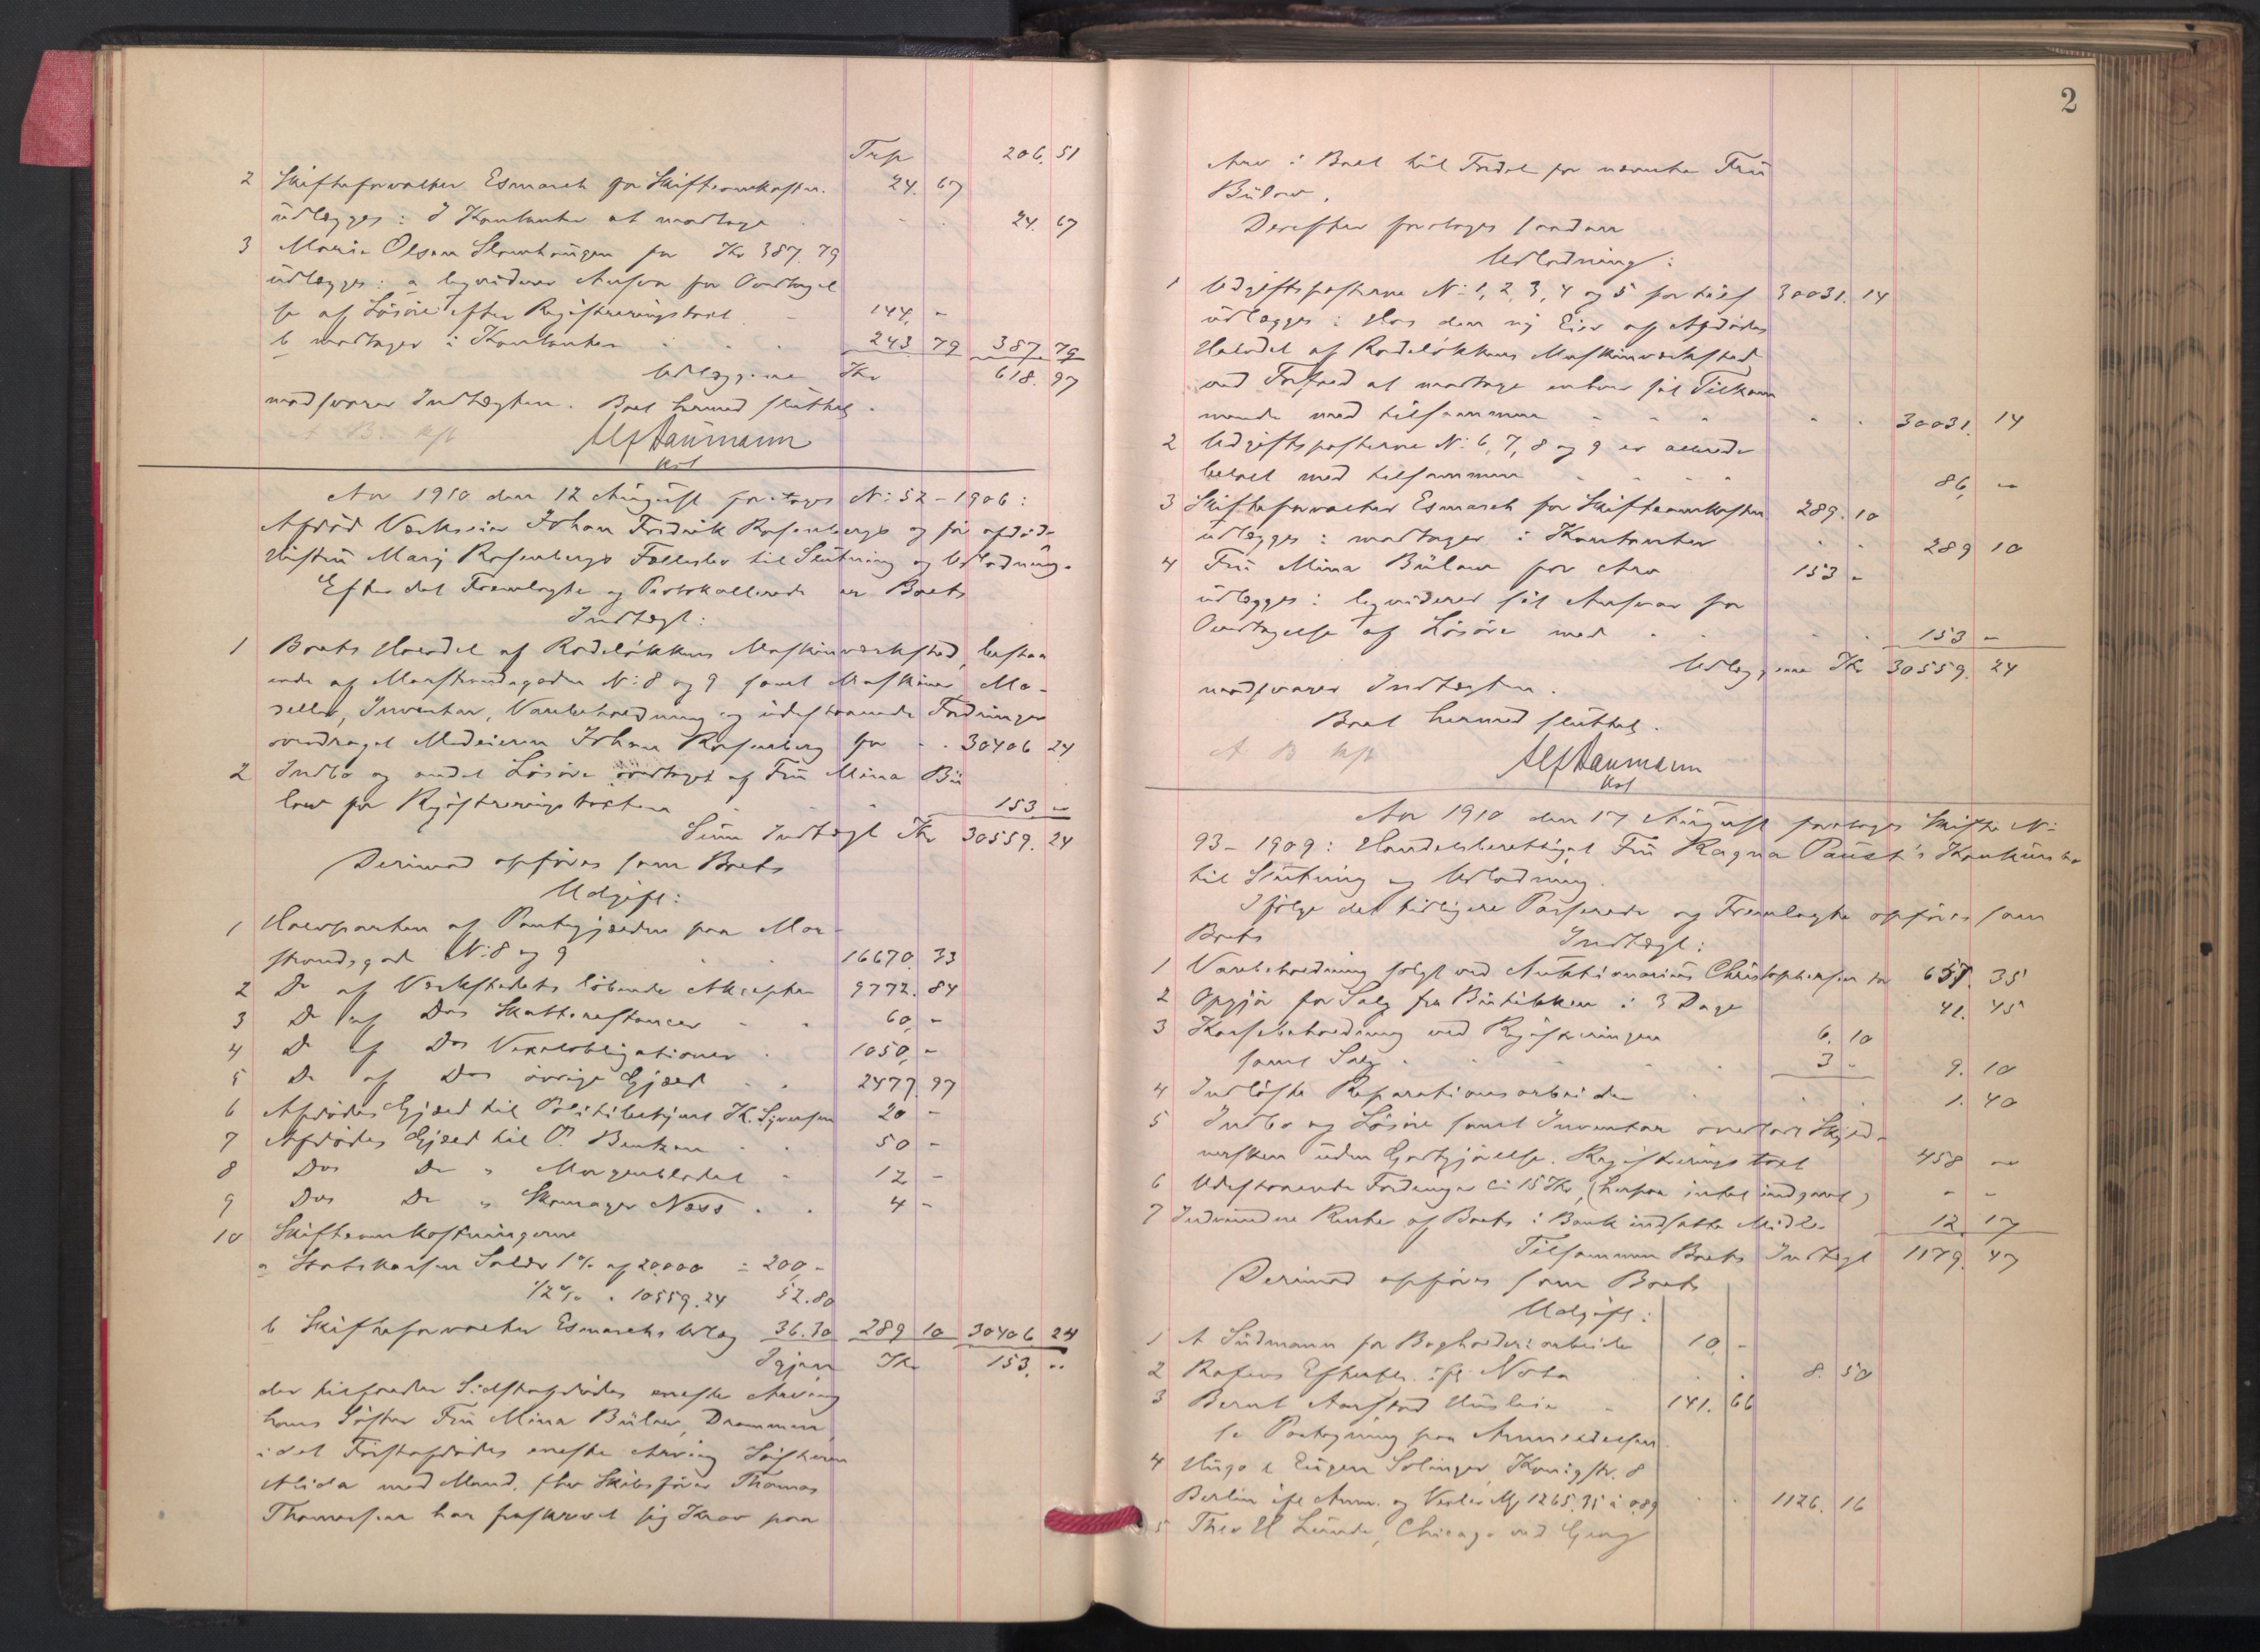 Trp 206. 51
2 Skifteforvalter Esmarch for Skifteomkostn. 24. 67
udlægges: I Kontanter at modtage 24. 67
3 Marie Olsen Slomhaugen for Kr 387. 79
udlægges: a liqviderer Ansvar for Overtagel
se af Løsøre efter Registreringstaxt - 144, -
b modtager i Kontanter 243 79 387. 79
Udlæggene Kr 618. 97
modsvarer Indtægten. Boet hermed sluttet.
A. B. kst Alf Naumann
kst
Aar 1910 den 12 August foretoges N: 52 - 1906:
Afdød Værkseier Johan Fredrik Rosenbergs og før afdøde
Hustru Marij Rosenbergs Fællesbo til Slutning og Udlodning.
Efter det Fremlagte og Protokollerede er Boets
Indtægt:
1 Boets Halvdel af Rodeløkkens Maskinværksted, bestaa
ende af Marstrandsgaden N: 8 og 9 samt Maskiner, Mo-
deller, Inventar, Varebeholdning og udestaaende Fordringer
overdraget Medeieren Johan Rosenberg for 30406 24
2 Indbo og andet Løsøre overtaget af Fru Mina Bü
low for Registreringstaxten 153 -
Sum Indtægt Kr 30559. 24
Derimod opføres som Boets
Udgift:
1 Halvparten af Pantegjælden paa Mar-
strandsgade N: 8 og 9 16670. 33
2 Do af Værkstedets løbende Akcepter 9772. 84
3 Do af Dos Skatterestancer 60, -
4 Do af Dos Vexelobligationer 1050, -
5 Do af Dos øvrige Gjæld 2477. 97
6 Afdødes Gjæld til Politibetjent K. Syversen 20 -
7 Afdødes Gjæld til O. Bentzen 50 -
8 Dos Do " Morgenbladet 12 -
9 Dos Do " Skomager Næss 4 -
10 Skifteomkostningerne
a Statskassen Salær 1% af 20000 = 200, -
1/2% " 10559.24 52.80
b Skifteforvalter Esmarchs Udlæg 36.30 289 10 30406. 24
Igjen Kr 153. -
der tilfalder Sidstafdødes eneste Arving
hans Søster Fru Mina Bülow, Drammen,
idet Førstafdødes eneste Arving Søsteren
Alida med Mand, fhv Skibsfører Thomas
Thomassen har fraskrevet sig Krav paa
2
Arv i Boet til Fordel for nævnte Fru
Bülow.
Derefter foretoges saadan
Udlodning:
1 Udgiftsposterne N: 1, 2, 3, 4 og 5 for tils 30031. 14
udlægges: Hos den ny Eier af Afdødes
Halvdel af Rodeløkkens Maskinværksted
ved Forfald at modtage enhver sit Tilkom
mende med tilsammen 30031. 14
2 Udgiftsposterne N: 6, 7, 8 og 9 er allerede
betalt med tilsammen 86, -
3 Skifteforvalter Esmarch for Skifteomkostn 289. 10
udlægges: modtager i Kontanter 289 10
4 Fru Mina Bülow for Arv 153 -
udlægges: liqviderer sit Ansvar for
Overtagelse af Løsøre med 153 -
Udlæggene Kr 30559. 24
modsvarer Indtægten.
Boet hermed sluttet.
A B kst Alf Naumann
kst
Aar 1910 den 17 August foretoges Skifte N:
93 - 1909: Handelsberettiget Fru Ragna Paust's Konkursbo
til Slutning og Udlodning.
Ifølge det tidligere Passerede og Fremlagte opføres som
Boets Indtægt:
1 Varebeholdning solgt ved Auktionarius Christophersen for 657. 35
2 Opgjør for Salg fra Butikken i 3 Dage 41. 45
3 Kassebeholdning ved Registreringen 6. 10
samt Salg 3 - 9. 10
4 Indløste Reparationsarbeider 1. 40
5 Indbo og Løsøre samt Inventar overladt Skyld-
nersken uden Godtgjørelse. Registreringstaxt 458 -
6 Udestaaende Fordringer ca 15 Kr, (herpaa intet indgaaet) - -
7 Indvundne Renter af Boets i Bank indsatte Midler 12. 17
Tilsammen Boets Indtægt 1179. 47
Derimod opføres som Boets
Udgift:
1 A Südmann for Bogholderiarbeide 10, -
2 Efterflr. ifl Nota 8. 50
3 Bernt Aarstad Husleie 141. 66
se Paategning paa Anmeldelsen.
4 Hugo & Eugen Solinger, Königstr. 8
Berlin ifl Anm. og Vexler Mk 1265.35 à 0.89 1126. 16
5 Theo H Lunde, Chicago ved Georg